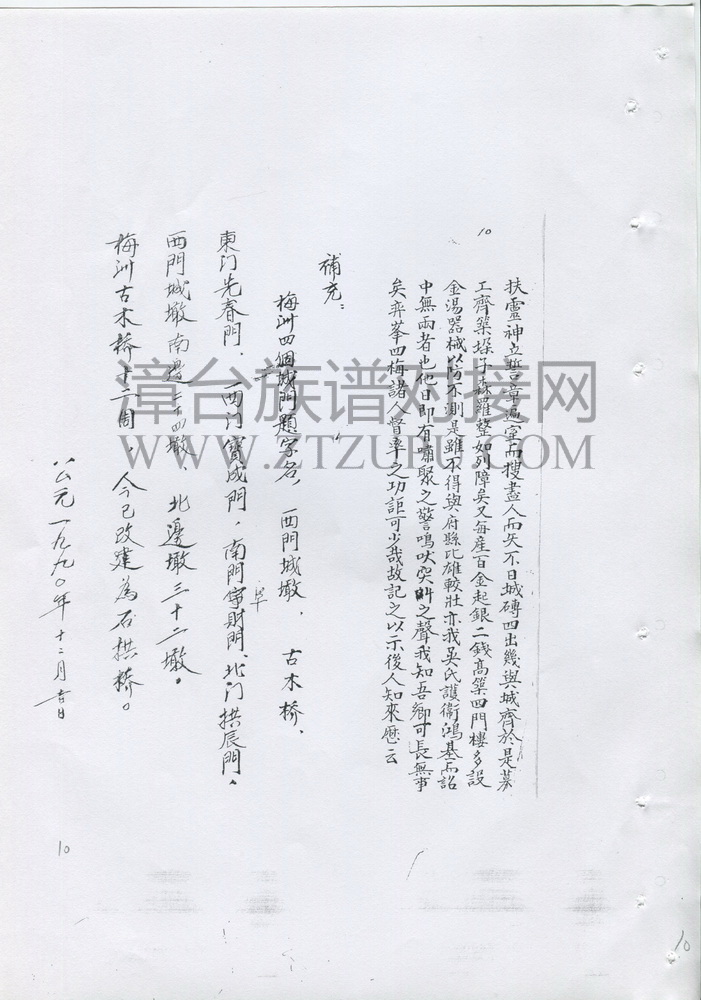 扶靈神立誓章遍室而搜盡人而矢不日城磚四出幾與城齊於是募
工齊築垛子森羅整如列障矣又每產百金起銀二錢高築四門樓多設
金湯器械以防不測是雖不得與府縣比雄較壯亦我吳氏護衛鴻基而詔
中無兩者也他日即有嘯聚之警鳴吠突聞之聲我知吾鄉可長無事
矣弈峯四梅諸人督率之功詎可少哉故記之以示後人知來歷云
10
補充：
梅洲四個城門題字名，西門城墩，古木桥、
東门先春門、西门寶成門，南門阜財門、北门拱辰門。
西門城墩南邊二十四墩、北邊墩三十二墩。
梅洲古木桥十二個，今已改建為石拱橋。
公元一九九〇年十二月
漳台族谱对接网
WWW.ZTZUPU.COM
10
10